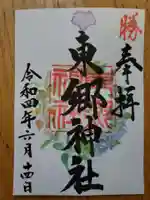 勝
奉拝
東郷神社
令和四年六月十四日